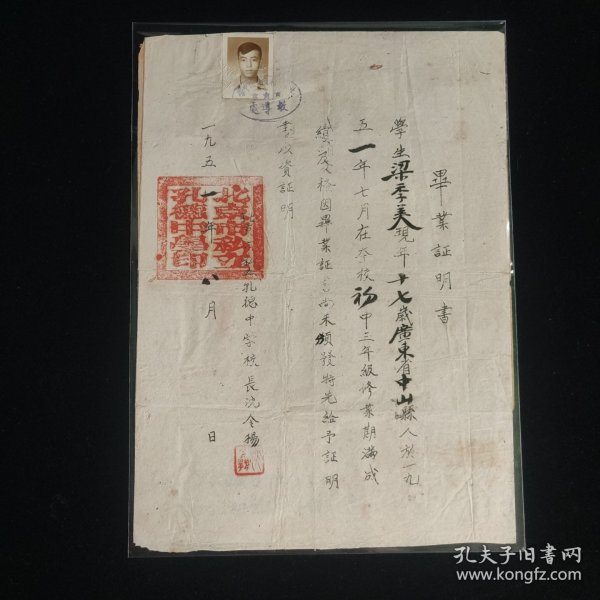 畢業証明書
學生梁季美現年十七歲廣東省中山縣人於一九
五一年七月在本校初中三年級修業期滿成
績及格因畢業証書尚未頒發特先給予証明
書以資証明
孔德中學校長沈令揚
一九五一年八月 日
孔夫子旧書网
www.kongfz.com